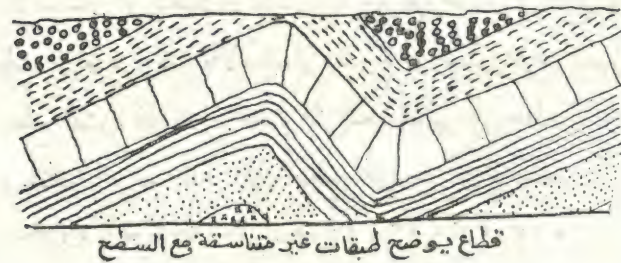 قطاع يوضح طبقات غير متناسقة مع السطح